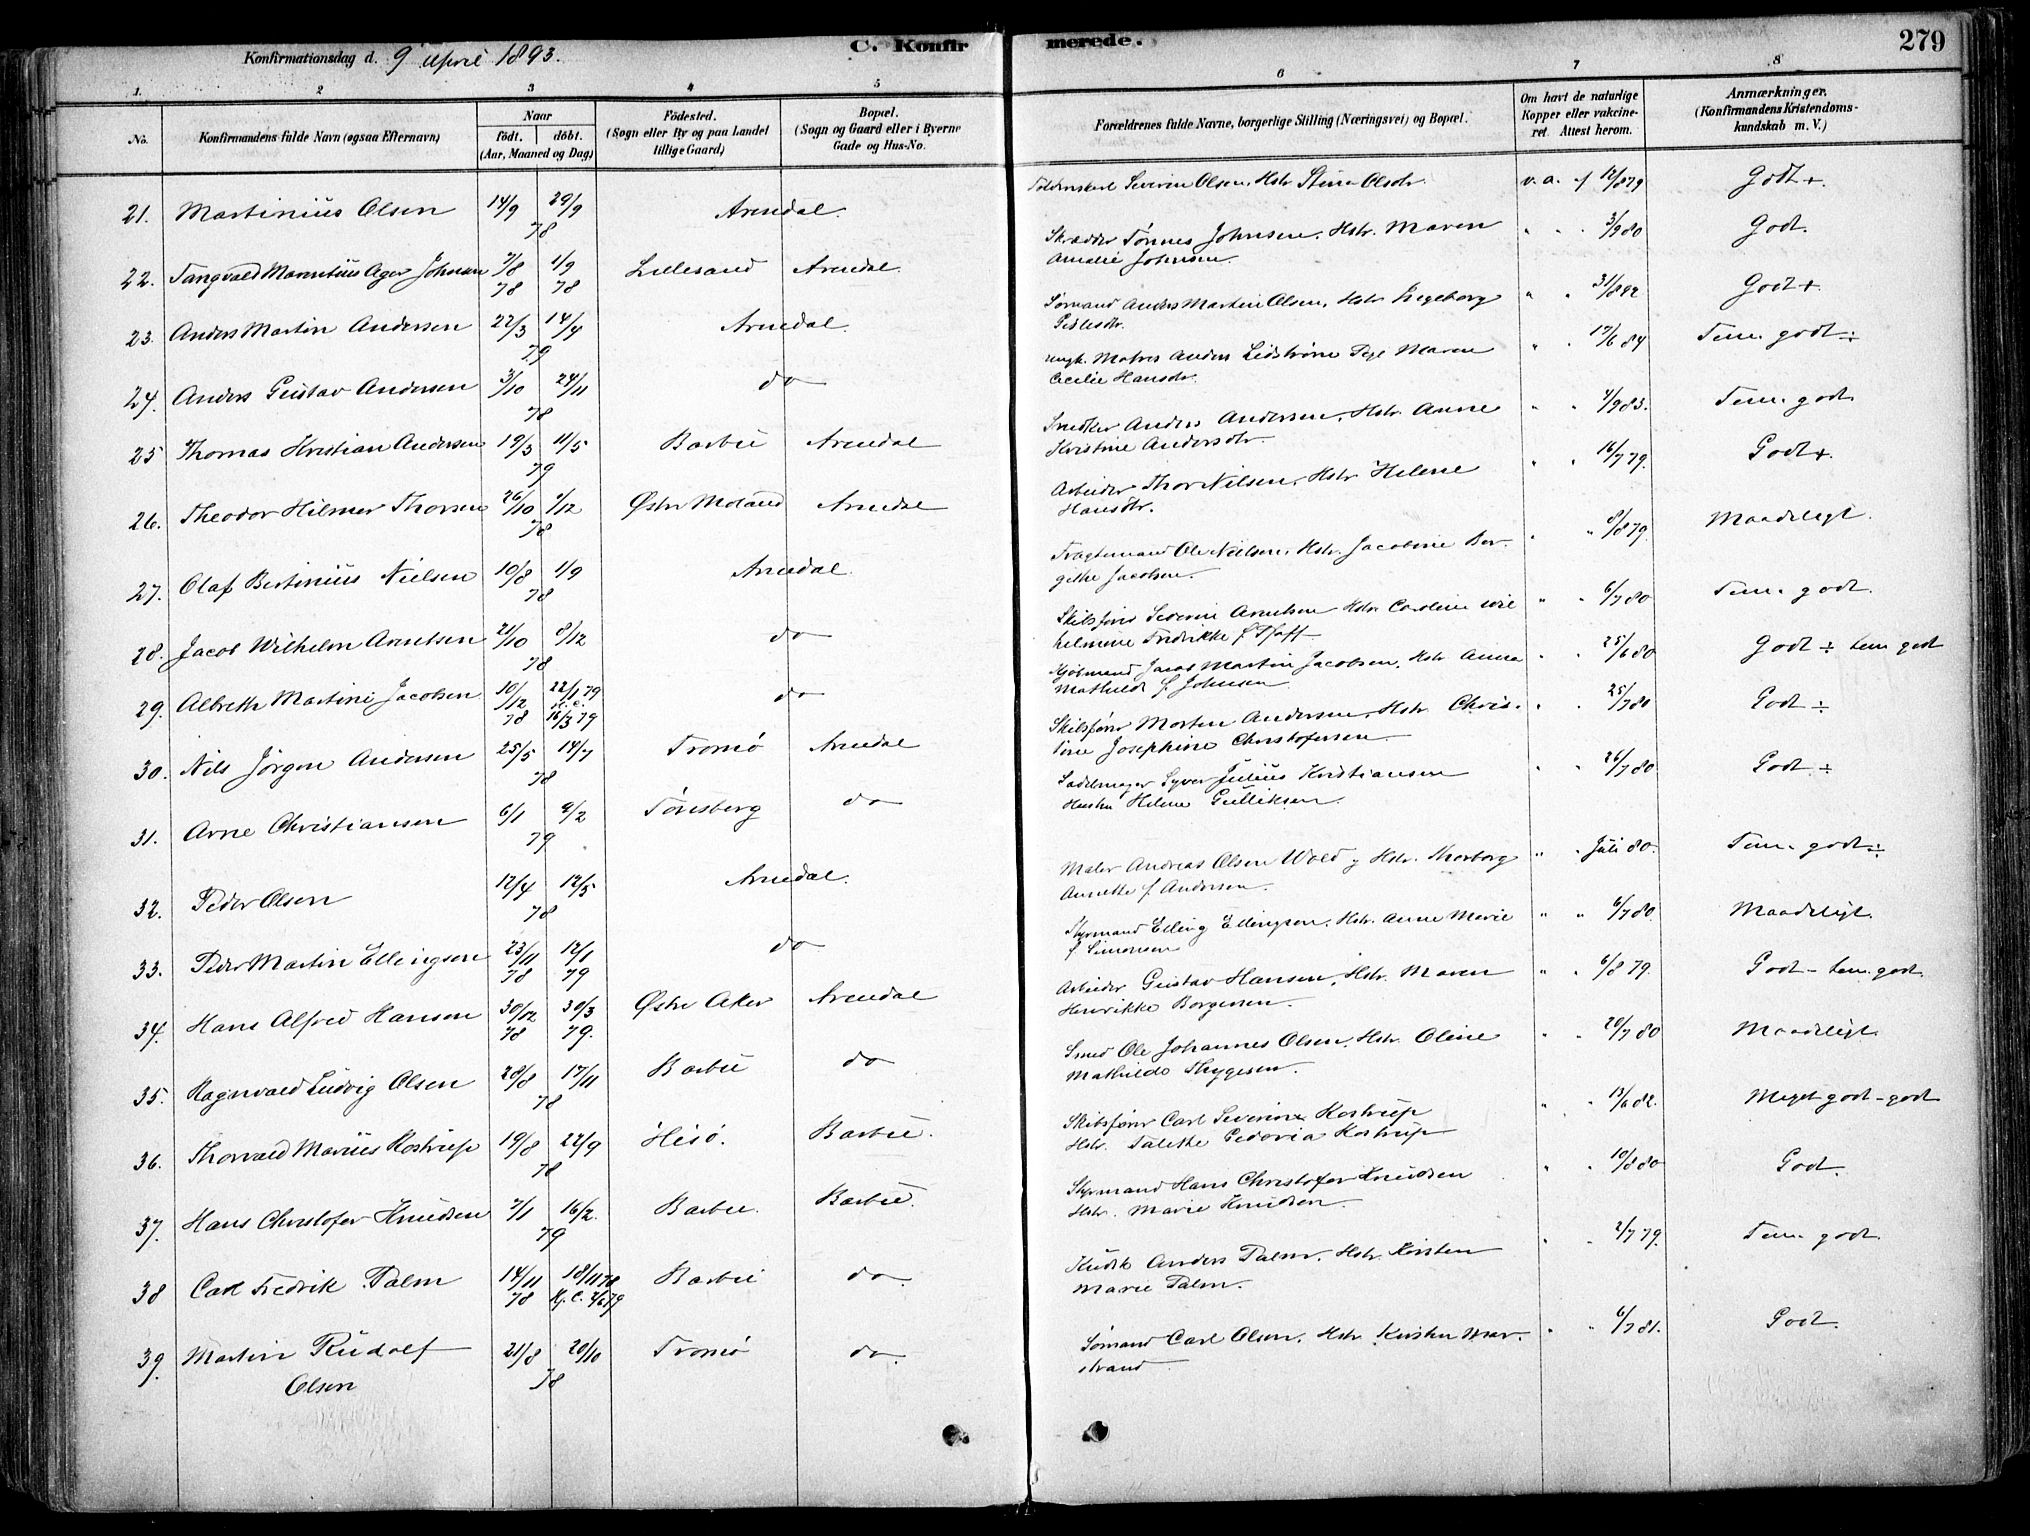 279
Konfirmationsdag d. 9 April 1893.
C. Konfirmerede.
1. 2 3 4 5 6 7 8
No.
Konfirmandens fulde Navn (ogsaa Efternavn)
Naar
födt. döbt.
(Aar, Maaned og Dag)
Födested.
(Sogn eller By og paa Landet
tillige Gaard)
Bopæl.
(Sogn og Gaard eller i Byerne
Gade og Hus-No.
Forældrenes fulde Navne, borgerlige Stilling (Næringsvei) og Bopæl.
Om havt de naturlige
Kopper eller vakcine-
ret. Attest herom.
Anmærkninger.
(Konfirmandens Kristendoms-
kundskab m. V.)
21. Martinius Olsen 14/9 29/9 78 Arendal. Severin Olsen, Hstr. Stine Olsdr. v. a. f 12/8 79 Godt +.
22. Tangvald Marentius Ager Johnsen 7/8 78 1/9 78 Lillesand Arendal. Skrædder Tönnes Johnsen, Hstr. Maren
Amalie Johnsen. " " 3/9 80 Godt.
23. Anders Martin Andersen 22/3 14/4 79 Arendal. Sömand Anders Martin Olsen, Hstr. Ingeborg
" " 31/8 92 Godt +
24. Anders Gustav Andersen 3/10 24/11 78 do Anders Lidström Pige Maren
Cecilie Hansdr. " " 17/6 84 Tem. godt ÷
25 Thomas Kristian Andersen 19/3 11/5 79 Barbu Arendal Snedker Anders Andersen, Hstr. Anne
Kristine Andersdr. " " 4/9 83. Tem. godt
26. Theodor Hilmer Thorsen 26/10 1/12 78 Østre Moland Arendal Arbeider Thor Nilsen, Hstr. Helene
Hansdr. " " 16/7 79. Godt +.
27. Olaf Bertinius Nielsen 10/8 1/9 78 Arendal. Fragtemand Ole Nielsen, Hstr. Jacobine Ber-
gethe Jacobsen. " " 8/8 79. Maadeligt.
28. Jacob Wilhelm Arnetsen 21/10 8/12 78 do Skibsförer Severin Arnetsen Hstr. Caroline Wil
helmine Fredrikke f. Pfaff " " 6/7 80 Tem. godt.
29. Albreth Martini Jacobsen 10/12 78 22/1 79 16/3 79 do Kjöbmand Jacob Martin Jacobsen, Hstr. Anna
Mathilde f. Johnsen " " 25/6 80 Godt ÷ tem godt
30. Nils Jörgen Andersen 25/5 14/7 78 Tromö Arendal Skibsförer Morten Andersen, Hstr. Chris-
tine Josephine Christofersen " " 25/7 80 Godt ÷
31. Arne Christiansen 6/1 9/2 79 Tönsberg do Sadelmager Syver Julius Kristiansen
Hustru Helene Gulliksen. " " 26/7 80 Godt ÷
32. Peder Olsen 12/4 12/5 78 Arendal. Maler Andreas Olsen Wold og Hstr. Thorborg
Annette f. Andersen. " " Juli 80. Tem. godt ÷
33. Peder Martin Ellingsen 23/11 78 12/1 79 do Styrmand Elling Ellingsen, Hstr. Anne Marie
f. Simonsen " " 6/7 80. Maadeligt.
34. Hans Alfred Hansen 30/12 78 30/3 79. Østre Aker Arendal Arbeider Gustav Hansen, Hstr. Maren
Henrikke Borgersen. " " 6/8 79. Godt - tem. godt
35. Ragnvald Ludvig Olsen 28/8 17/11 78 Barbu do Smed Ole Johannes Olsen, Hstr. Oline
Mathilde Thygesen. " " 20/7 80 Maadeligt
36. Thorvald Marius Kostrup 19/8 22/9 78 Hisö. Barbu. Skibsförer Carl Severin Kostrup
Hstr. Talette Pedovia Kostrup " " 13/6 82. Meget godt - godt
37. Hans Christofer Knudsen 7/1 16/2. 79 Barbu. Barbu. Styrmand Hans Christofer Knudsen
Hstr. Marie Knudsen. " " 10/8 80 Godt.
38 Carl Fredrik Palm 14/11 78 18/11 78 Kj. C. 2/6 79 Barbu do. Kudsk Anders Palm, Hstr. Kirsten
Marie Palm. " " 2/7 79. Tem. godt.
39. Martin Rudolf
Olsen 21/8 20/10 78 Tromö do. Sömand Carl Olsen, Hstr. Kirsten Mar-
strand " " 6/7 81. Godt.